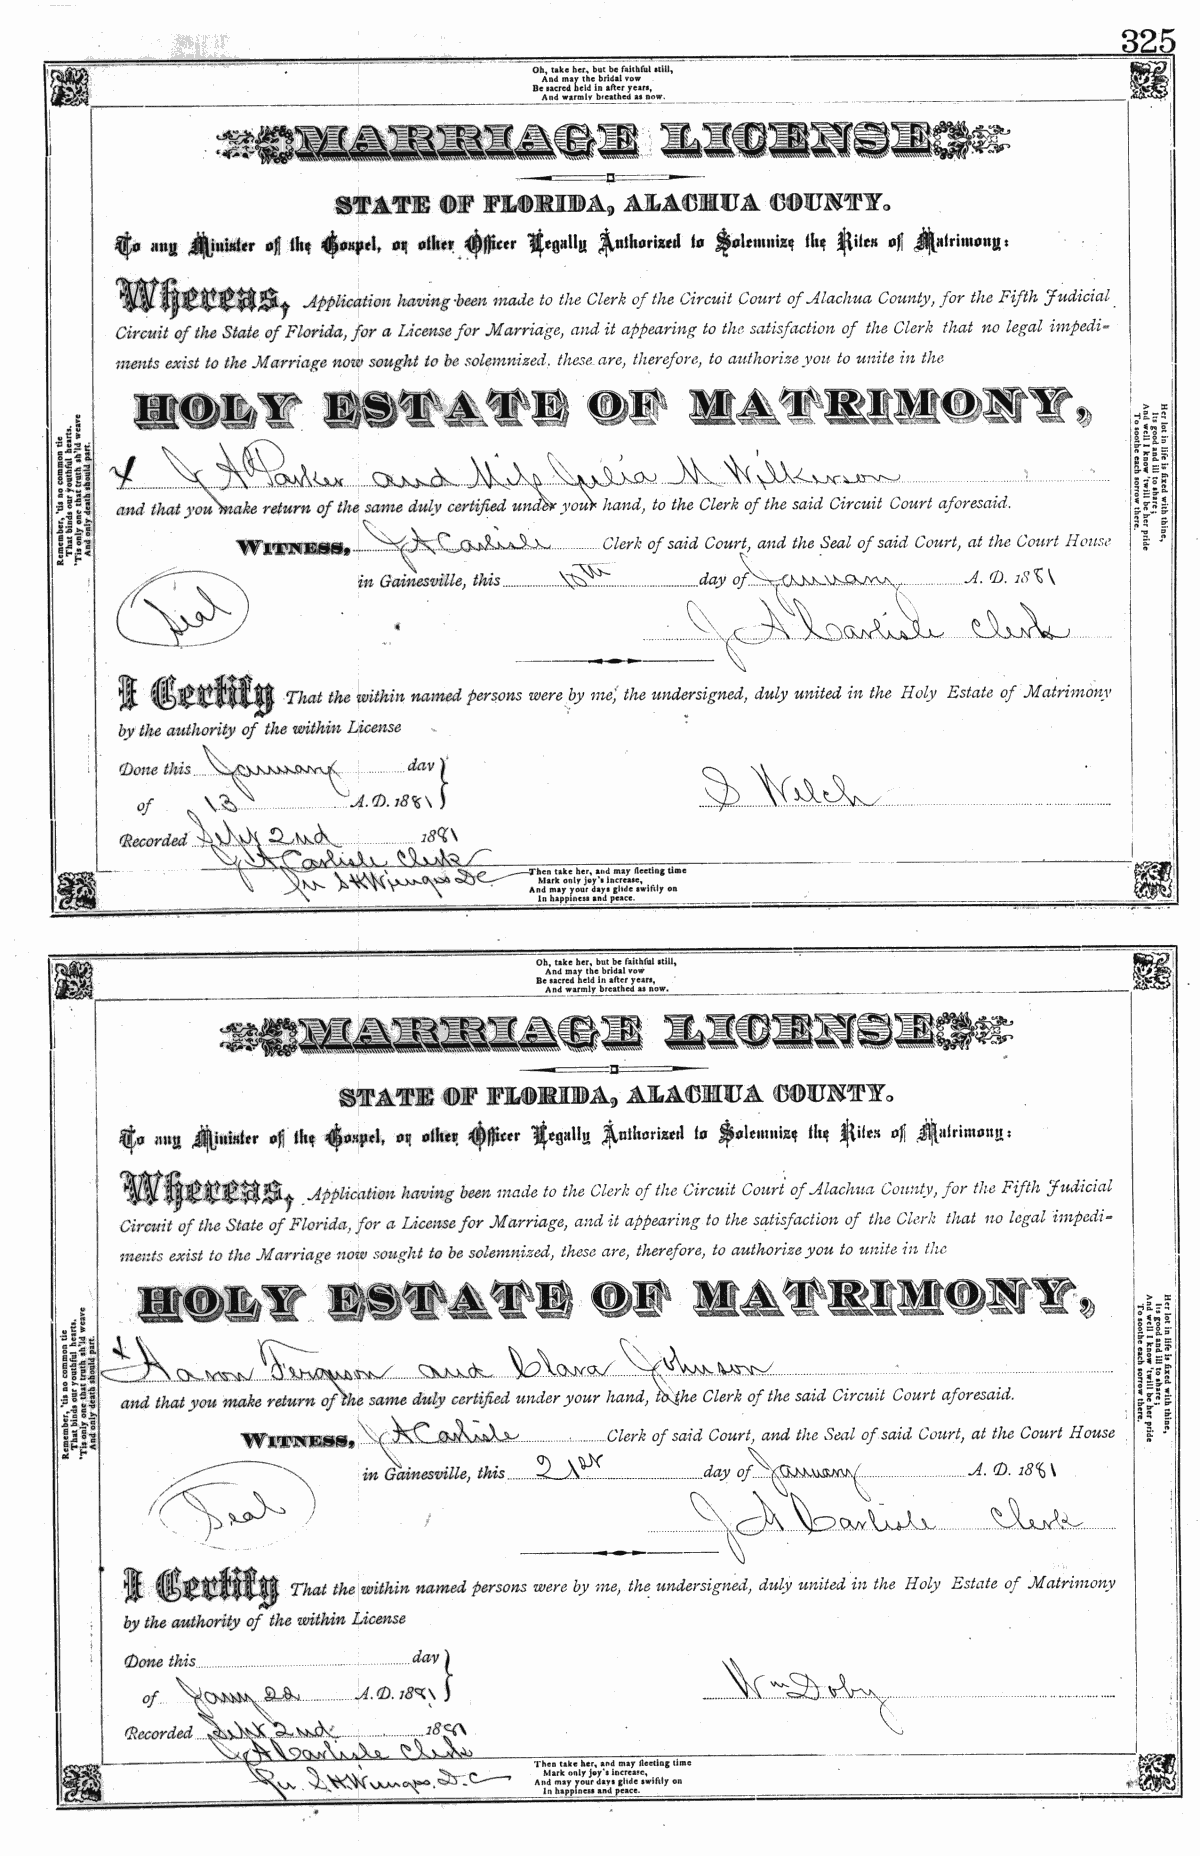 325
Oh, take her, but be faithful still,
And may the bridal vow
Be sacred held in after years,
And warmly breathed as now.
MARRIAGE LICENSE
STATE OF FLORIDA, ALACHUA COUNTY.
To any Minister of the Gospel, or other Officer Legally Authorized to Solemnize the Rites of Matrimony:
Whereas, Application having been made to the Clerk of the Circuit Court of Alachua County, for the Fifth Judicial
Circuit of the State of Florida, for a License for Marriage, and it appearing to the satisfaction of the Clerk that no legal impedi-
ments exist to the Marriage now sought to be solemnized, these are, therefore, to authorize you to unite in the
HOLY ESTATE OF MATRIMONY,
x J A Parker and Miss Julia M Wilkerson
and that you make return of the same duly certified under your hand, to the Clerk of the said Circuit Court aforesaid.
WITNESS, J A Carlisle Clerk of said Court, and the Seal of said Court, at the Court House
in Gainesville, this 10th day of January A. D. 1881
Seal
J A Carlisle Clerk
I Certify That the within named persons were by me, the undersigned, duly united in the Holy Estate of Matrimony
by the authority of the within License
Done this January day
of 13 A. D. 1881
S Welch
Recorded Sept 2nd 1881
J A Carlisle Clerk
per S H D.C.
Then take her, and may fleeting time
Mark only joy's increase,
And may your days glide swiftly on
In happiness and peace.
Remember, 'tis no common tie
That binds our youthful hearts,
'Tis only one that truth sh'ld weave
And only death should part.
Her lot in life is fixed with thine,
Its good and ill to share;
And well I know 'twill be her pride
To soothe each sorrow there.
Oh, take her, but be faithful still,
And may the bridal vow
Be sacred held in after years,
And warmly breathed as now.
MARRIAGE LICENSE
STATE OF FLORIDA, ALACHUA COUNTY.
To any Minister of the Gospel, or other Officer Legally Authorized to Solemnize the Rites of Matrimony:
Whereas, Application having been made to the Clerk of the Circuit Court of Alachua County, for the Fifth Judicial
Circuit of the State of Florida, for a License for Marriage, and it appearing to the satisfaction of the Clerk that no legal impedi-
ments exist to the Marriage now sought to be solemnized, these are, therefore, to authorize you to unite in the
HOLY ESTATE OF MATRIMONY,
x Aaron Ferguson and Clara Johnson
and that you make return of the same duly certified under your hand, to the Clerk of the said Circuit Court aforesaid.
WITNESS, J A Carlisle Clerk of said Court, and the Seal of said Court, at the Court House
in Gainesville, this 21st day of January A. D. 1881
Seal
J A Carlisle Clerk
I Certify That the within named persons were by me, the undersigned, duly united in the Holy Estate of Matrimony
by the authority of the within License
Done this day
of Jany 22 A. D. 1881
Wm Doby
Recorded Sept 2nd 1881
J A Carlisle Clerk
per S H D.C
Then take her, and may fleeting time
Mark only joy's increase,
And may your days glide swiftly on
In happiness and peace.
Remember, 'tis no common tie
That binds our youthful hearts,
'Tis only one that truth sh'ld weave
And only death should part.
Her lot in life is fixed with thine,
Its good and ill to share;
And well I know 'twill be her pride
To soothe each sorrow there.